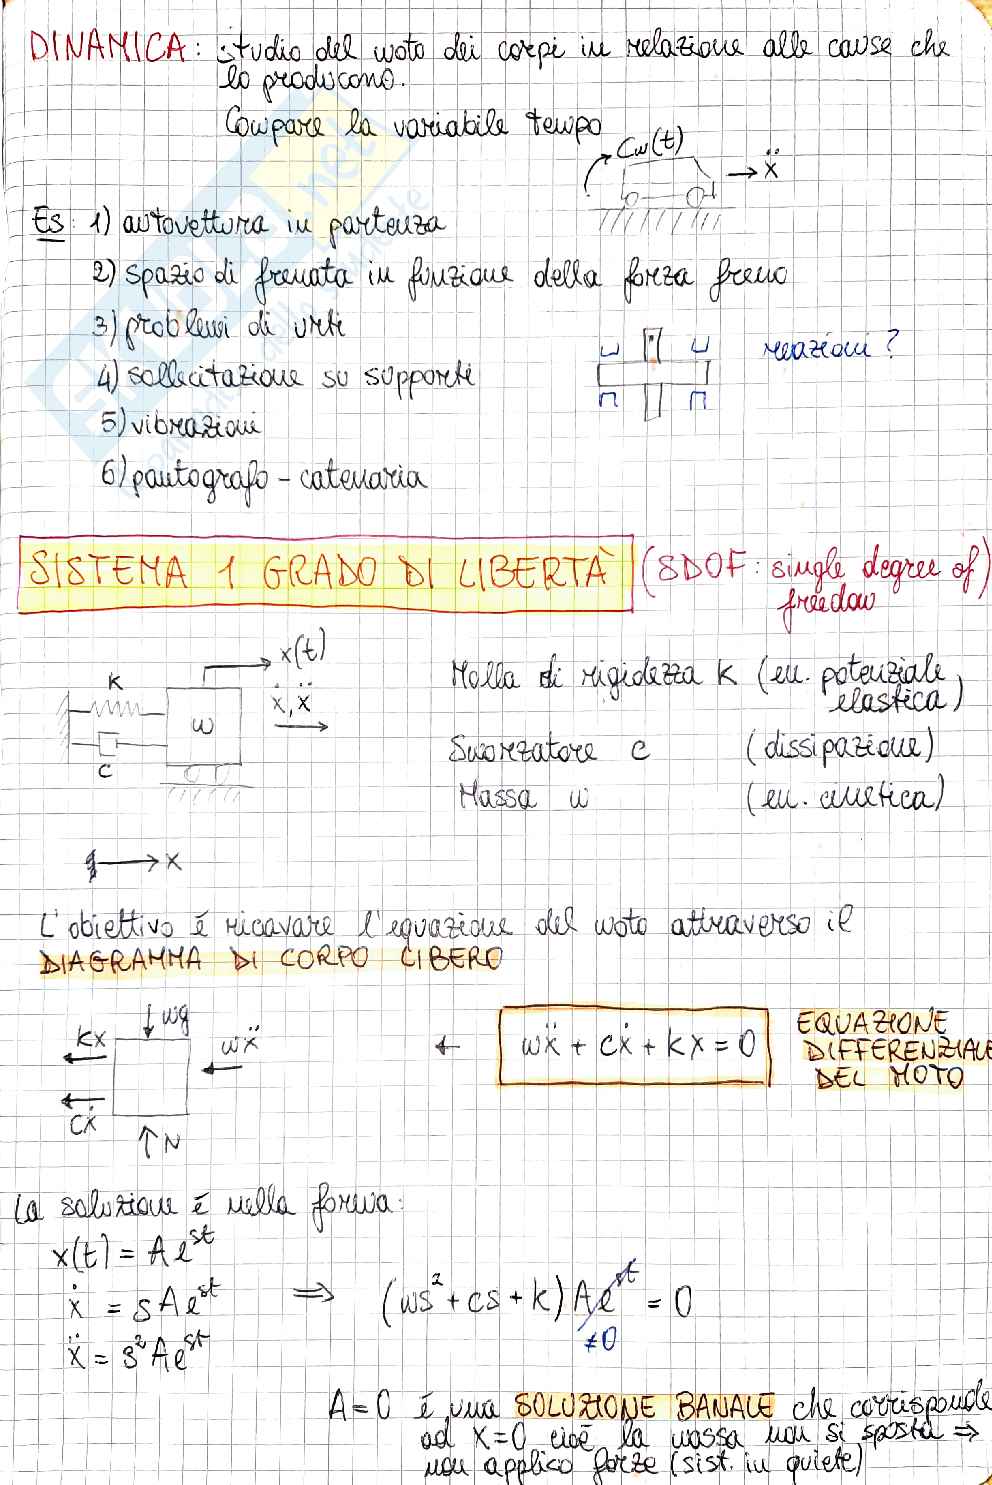 DINAMICA: studio del moto dei corpi in relazione alle cause che
lo producono.
Compare la variabile tempo
Cm(t)
ẍ
Es: 1) autovettura in partenza
2) spazio di frenata in funzione della forza freno
3) problemi di urti
reazioni?
4) sollecitazione su supporti
5) vibrazioni
6) pantografo - catenaria
SISTEMA 1 GRADO DI LIBERTÀ (SDOF: single degree of)
freedom
x(t)
K
ẋ, ẍ
m
c
Molla di rigidezza K (en. potenziale
elastica)
Smorzatore c (dissipazione)
Massa m (en. cinetica)
x
L'obiettivo è ricavare l'equazione del moto attraverso il
DIAGRAMMA DI CORPO LIBERO
mg
kx
mẍ
cẋ
N
← mẍ + cẋ + kx = 0
EQUAZIONE
DIFFERENZIALE
DEL MOTO
La soluzione è nella forma:
x(t) = A e^st
ẋ = s A e^st ⇒ (ms² + cs + k) A e^st = 0
≠0
ẍ = s² A e^st
A=0 è una SOLUZIONE BANALE che corrisponde
ad x=0 cioè la massa non si sposta ⇒
non applico forze (sist. in quiete)